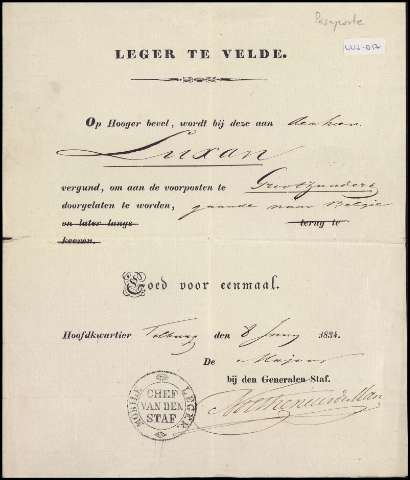 Paspoorte
LEGER TE VELDE.
Op Hooger bevel, wordt bij deze aan den heer
Luxan
vergund, om aan de voorposten te Grootzundert
doorgelaten te worden, gaande naar Belgie
en later langs terug te
keeren.
Goed voor eenmaal.
Hoofdkwartier Tilburg den 8 Juny 1834.
De Majoor
bij den Generalen Staf.
MOBILE LEGER
CHEF
VAN DEN
STAF